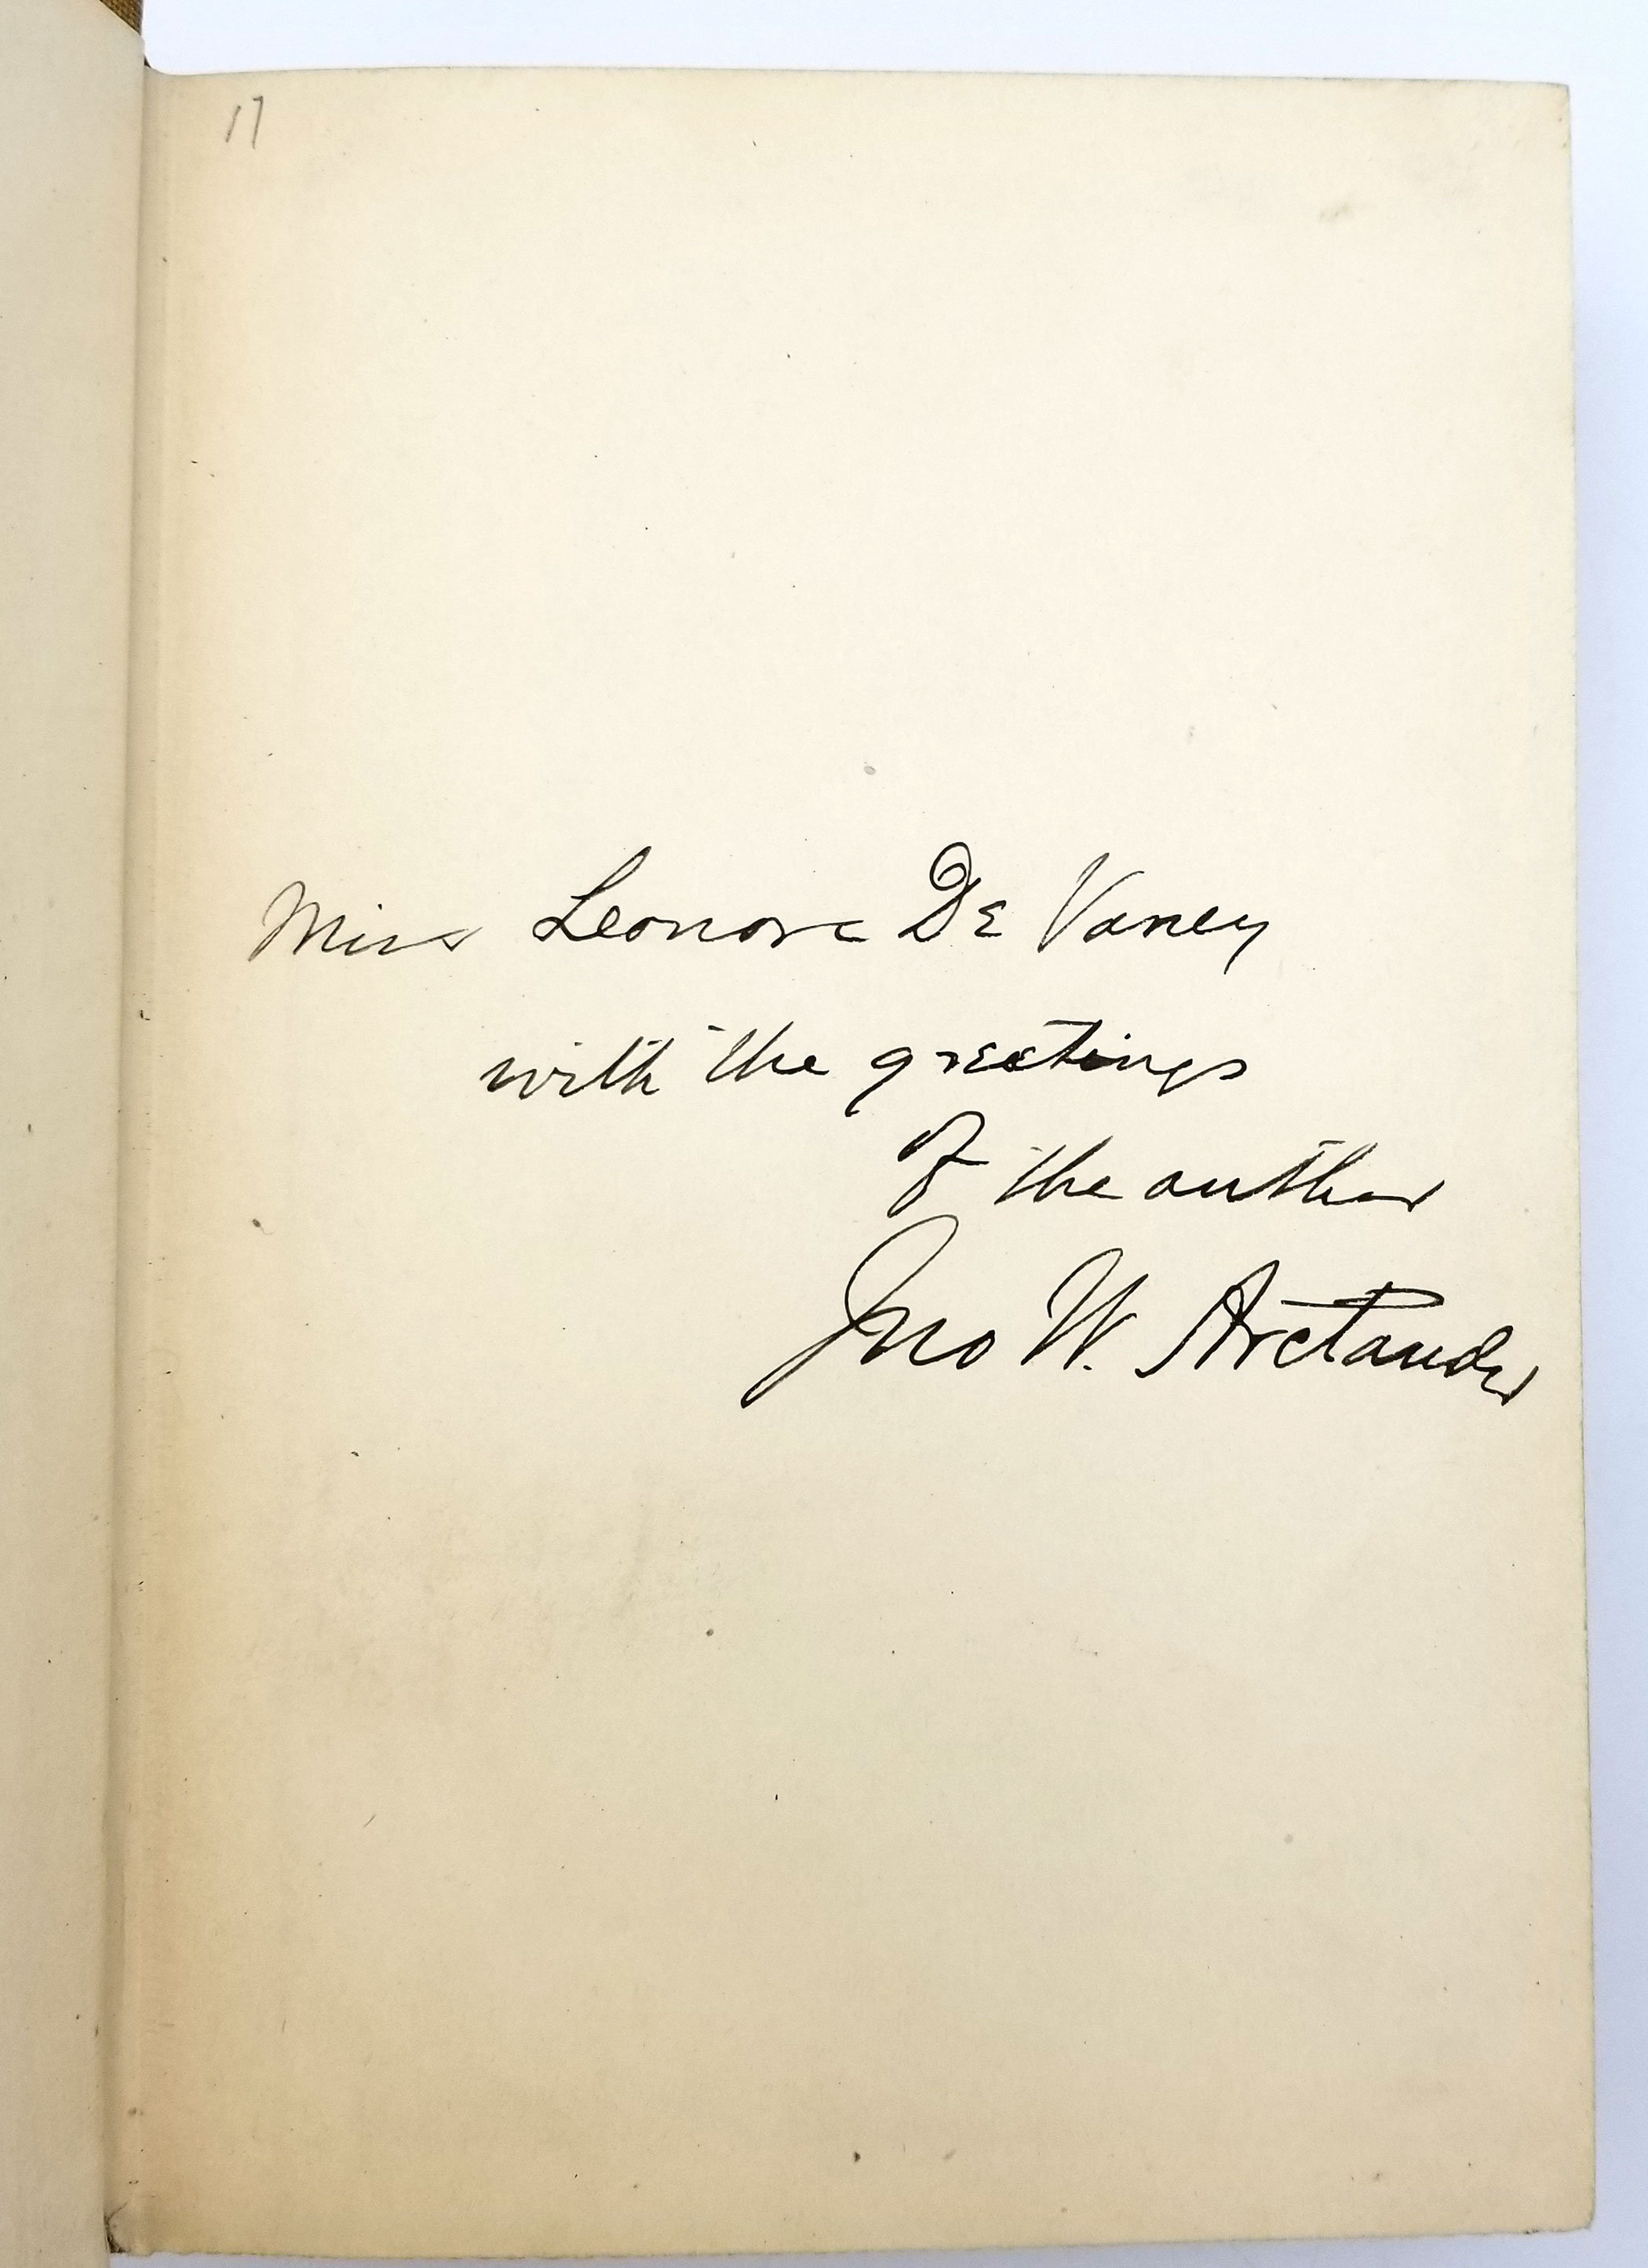 17
Miss Leonore De Vaney
with the greetings
of the author
Jno W. Arctander